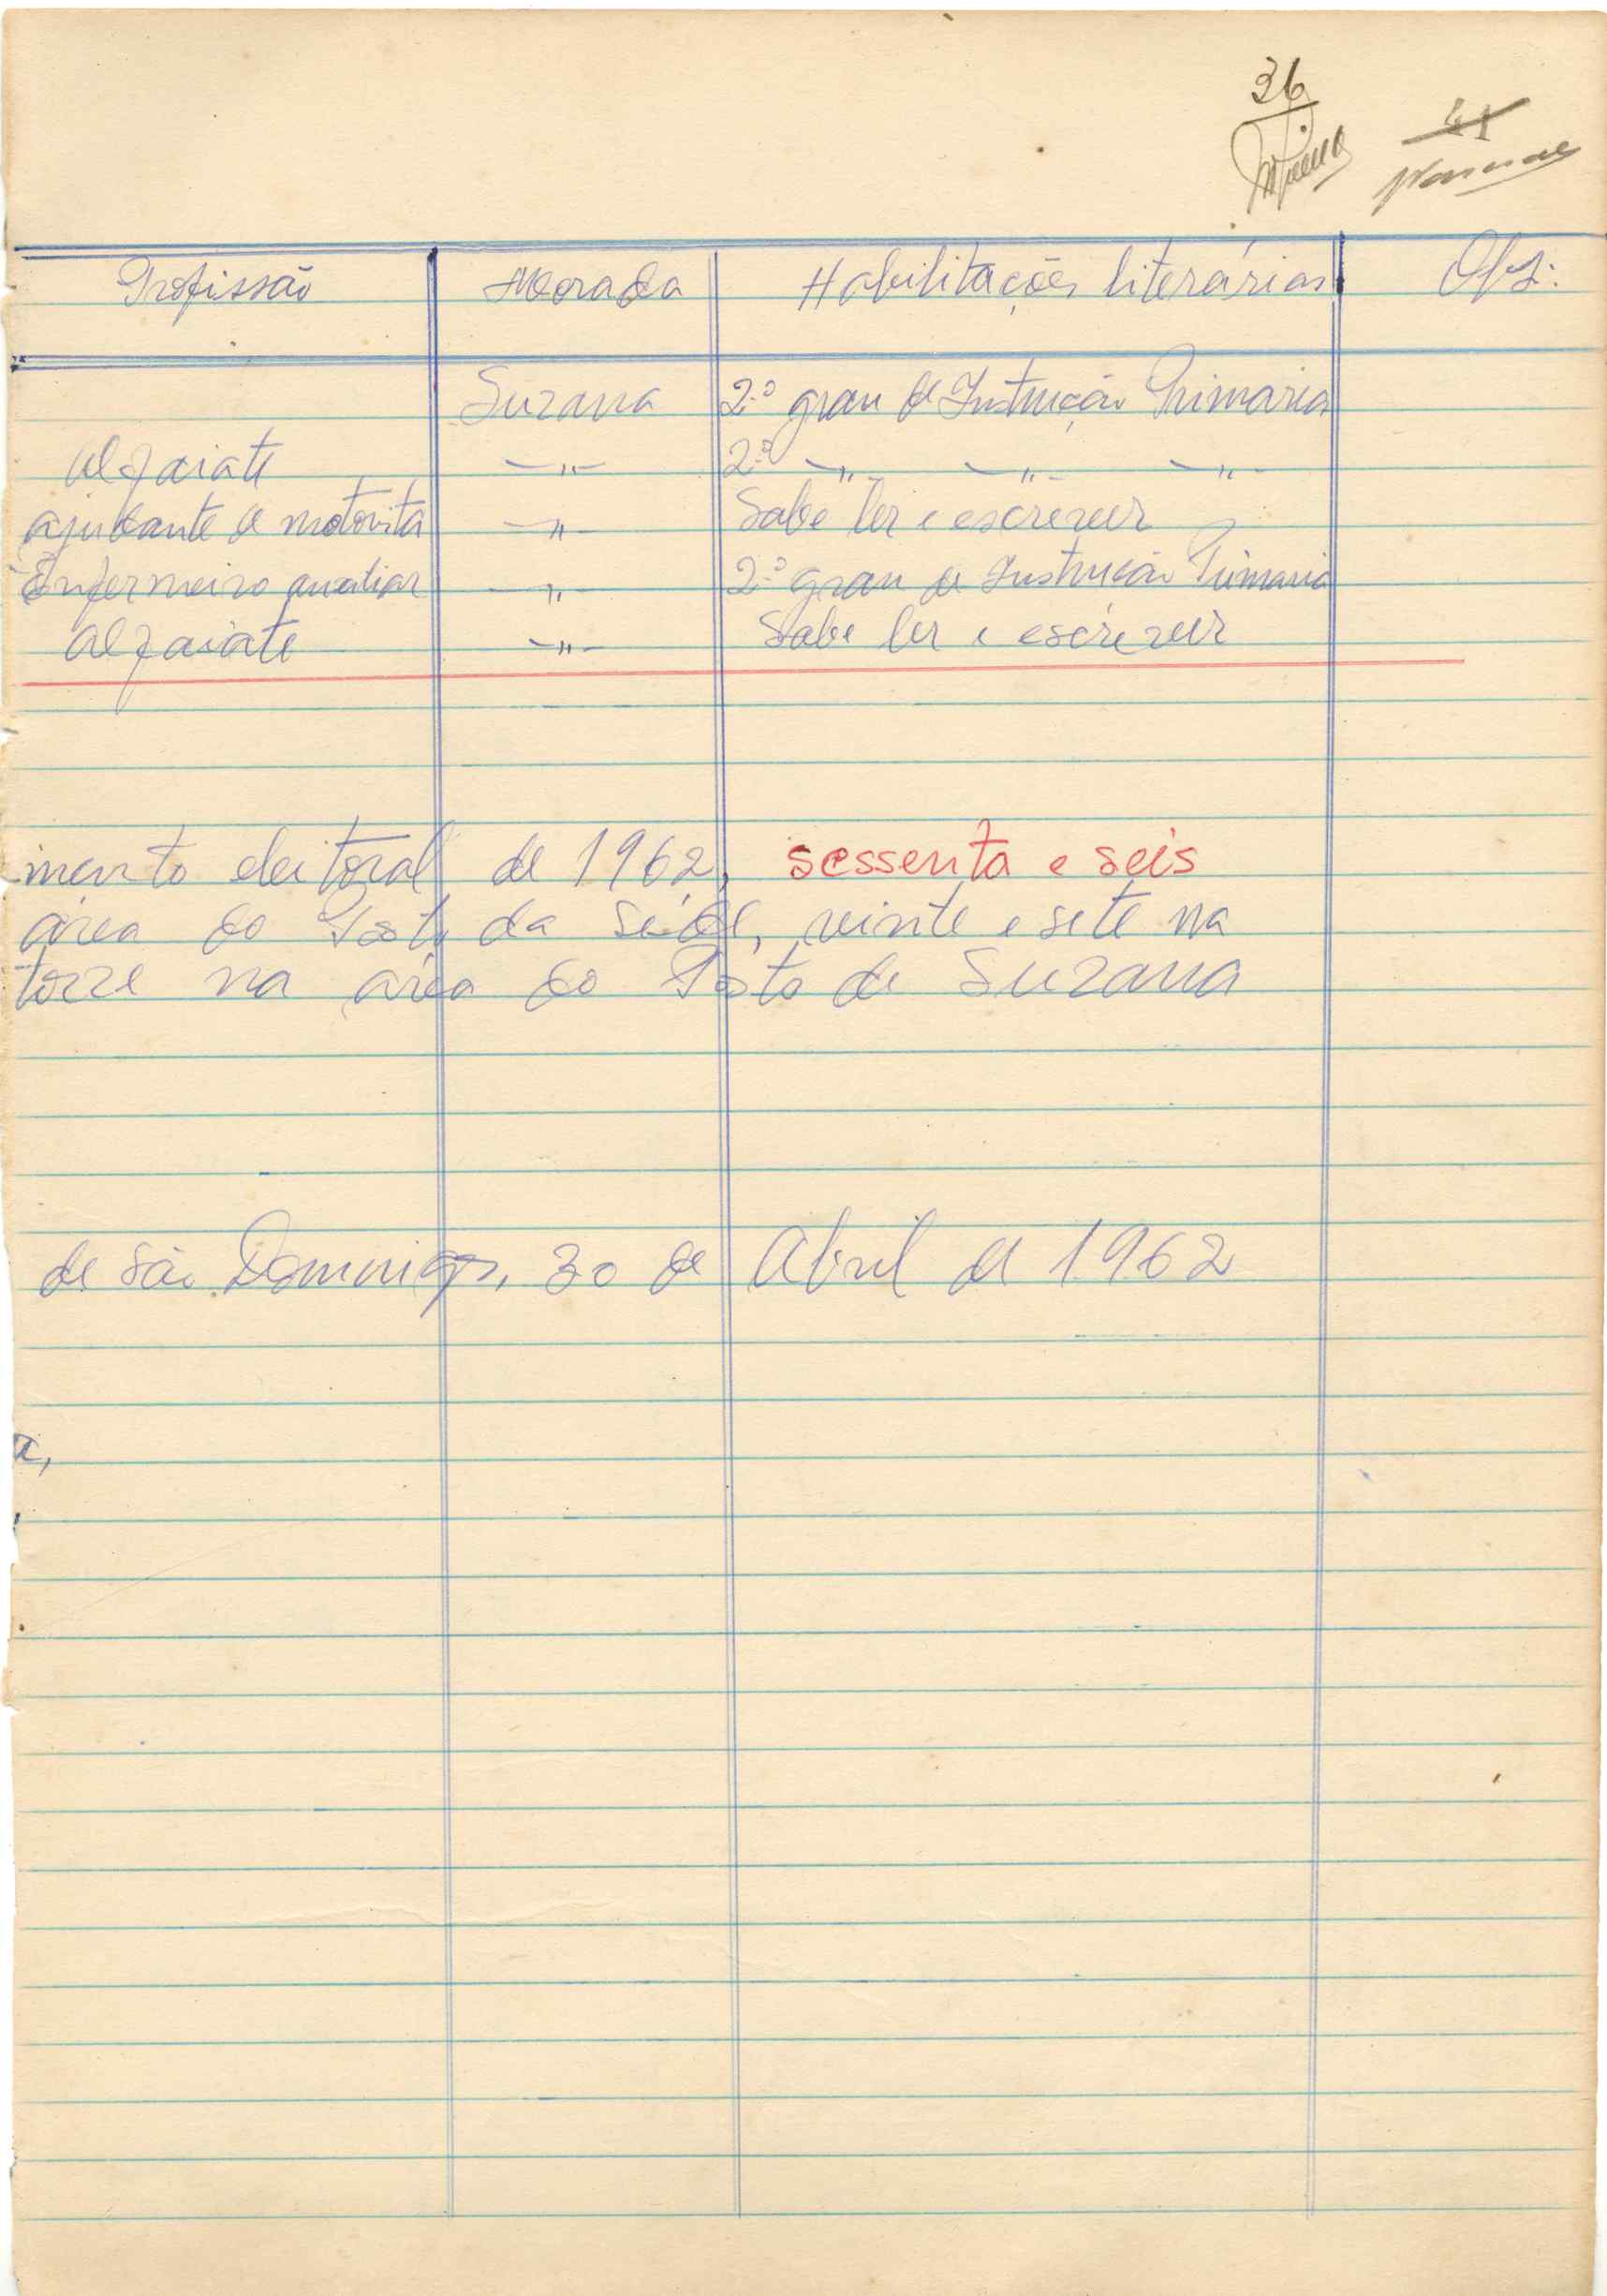 36
41
Profissão Morada Habilitações literárias Obs:
Suzana 2.º grau de Instrução Primaria
Alfaiate —„— 2.º —„— —„— —„—
ajudante de motorista —„— Sabe ler e escrever
Enfermeiro auxiliar —„— 2.º grau de Instrução Primaria
Alfaiate —„— Sabe ler e escrever
mento eleitoral de 1962, sessenta e seis
área do Posto da Séde, vinte e sete na
torze na área do Posto de Suzana
de São Domingos, 30 de Abril de 1962
a,